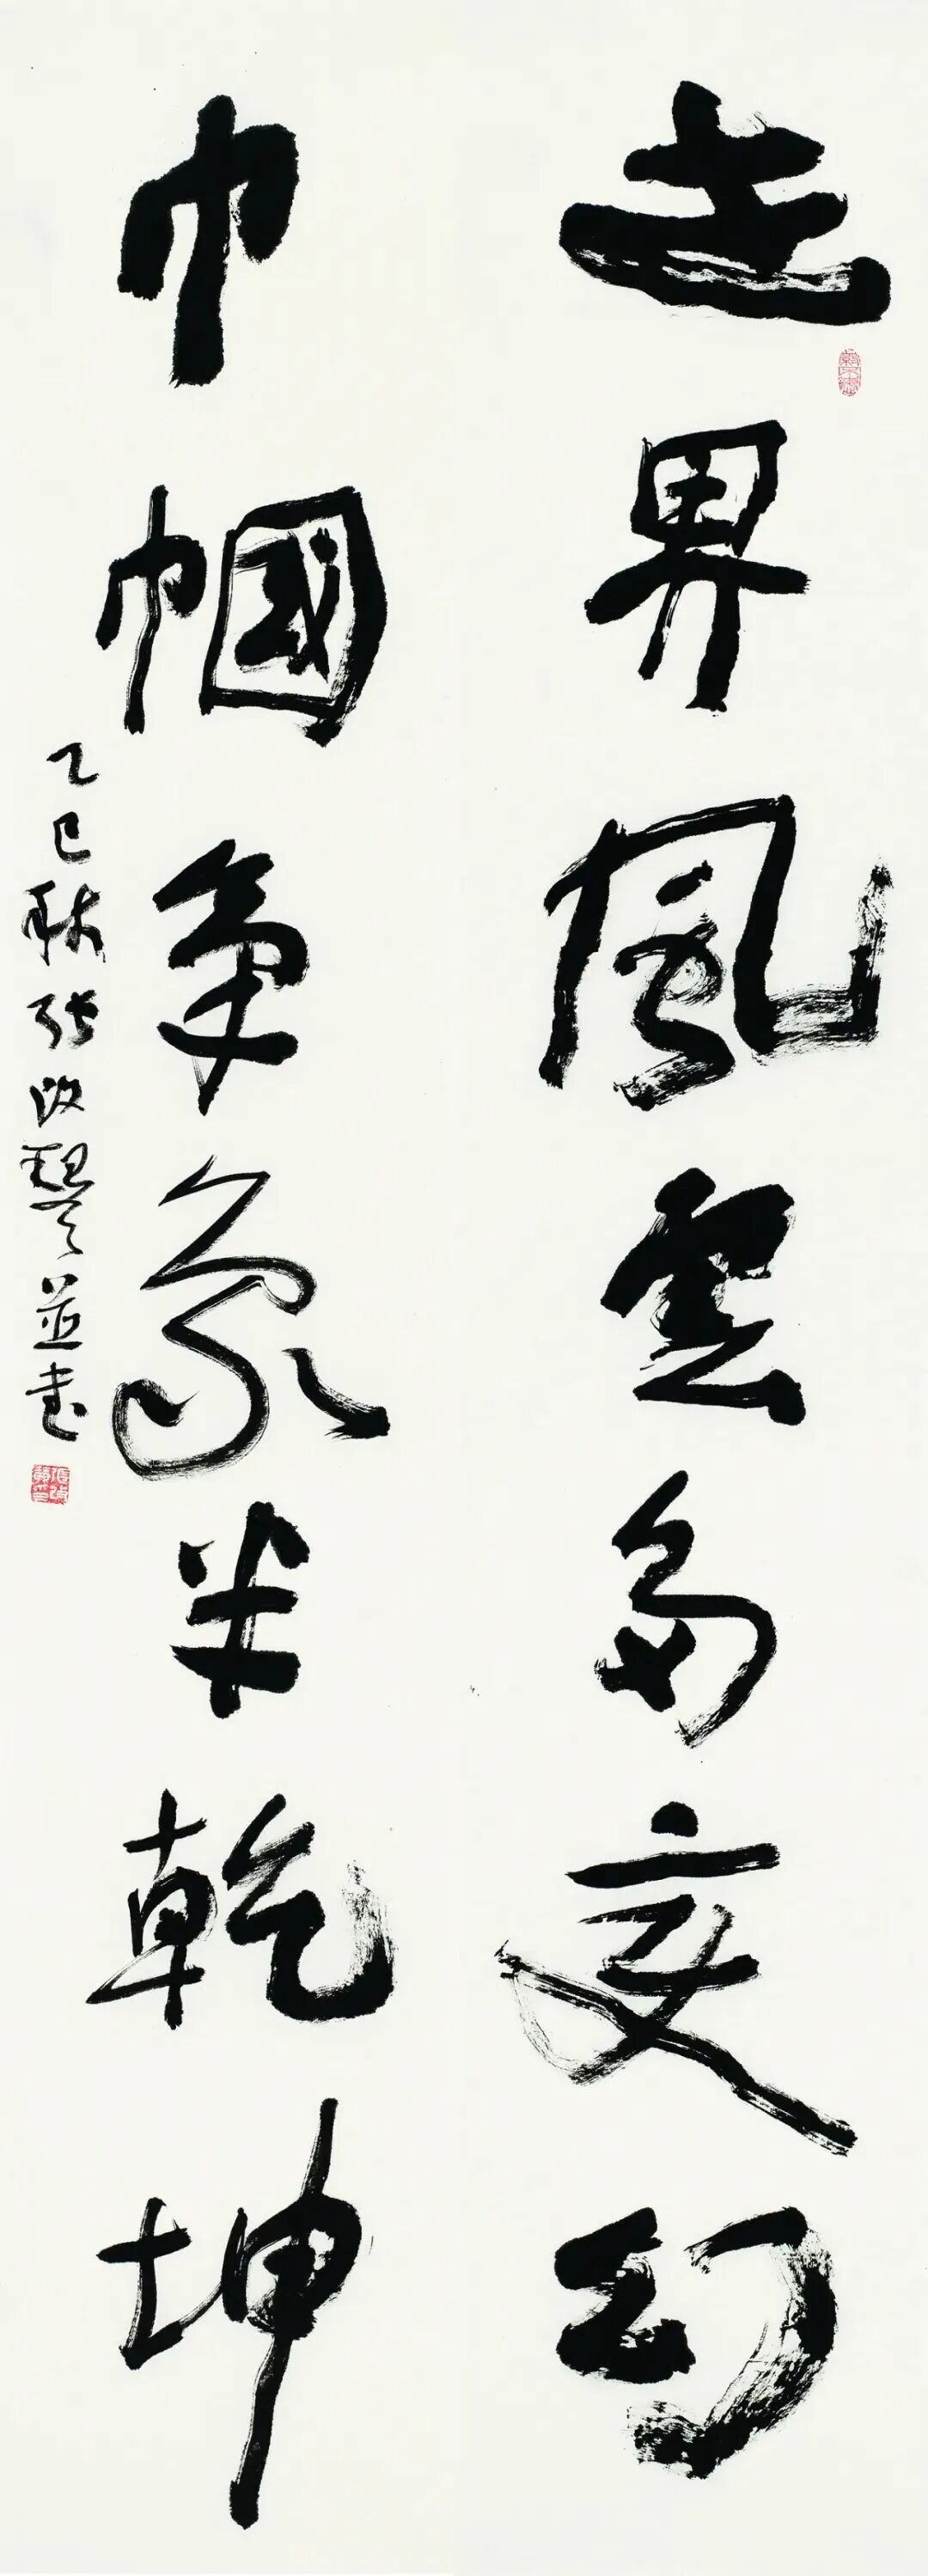 世界風雲多变幻
巾帼争象半乾坤
乙巳秋張改琴並書